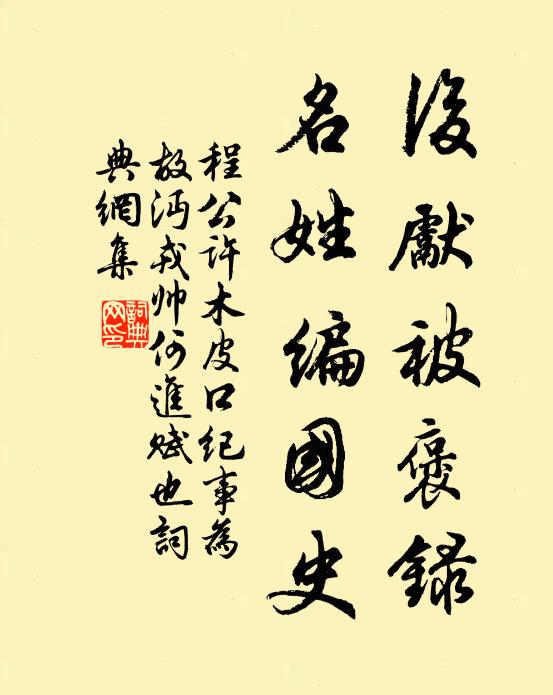 後獻被褒錄
名姓編國史
程公許木皮口紀事為
故沔戎帅何進賦也詞
典網集
詞典
网印